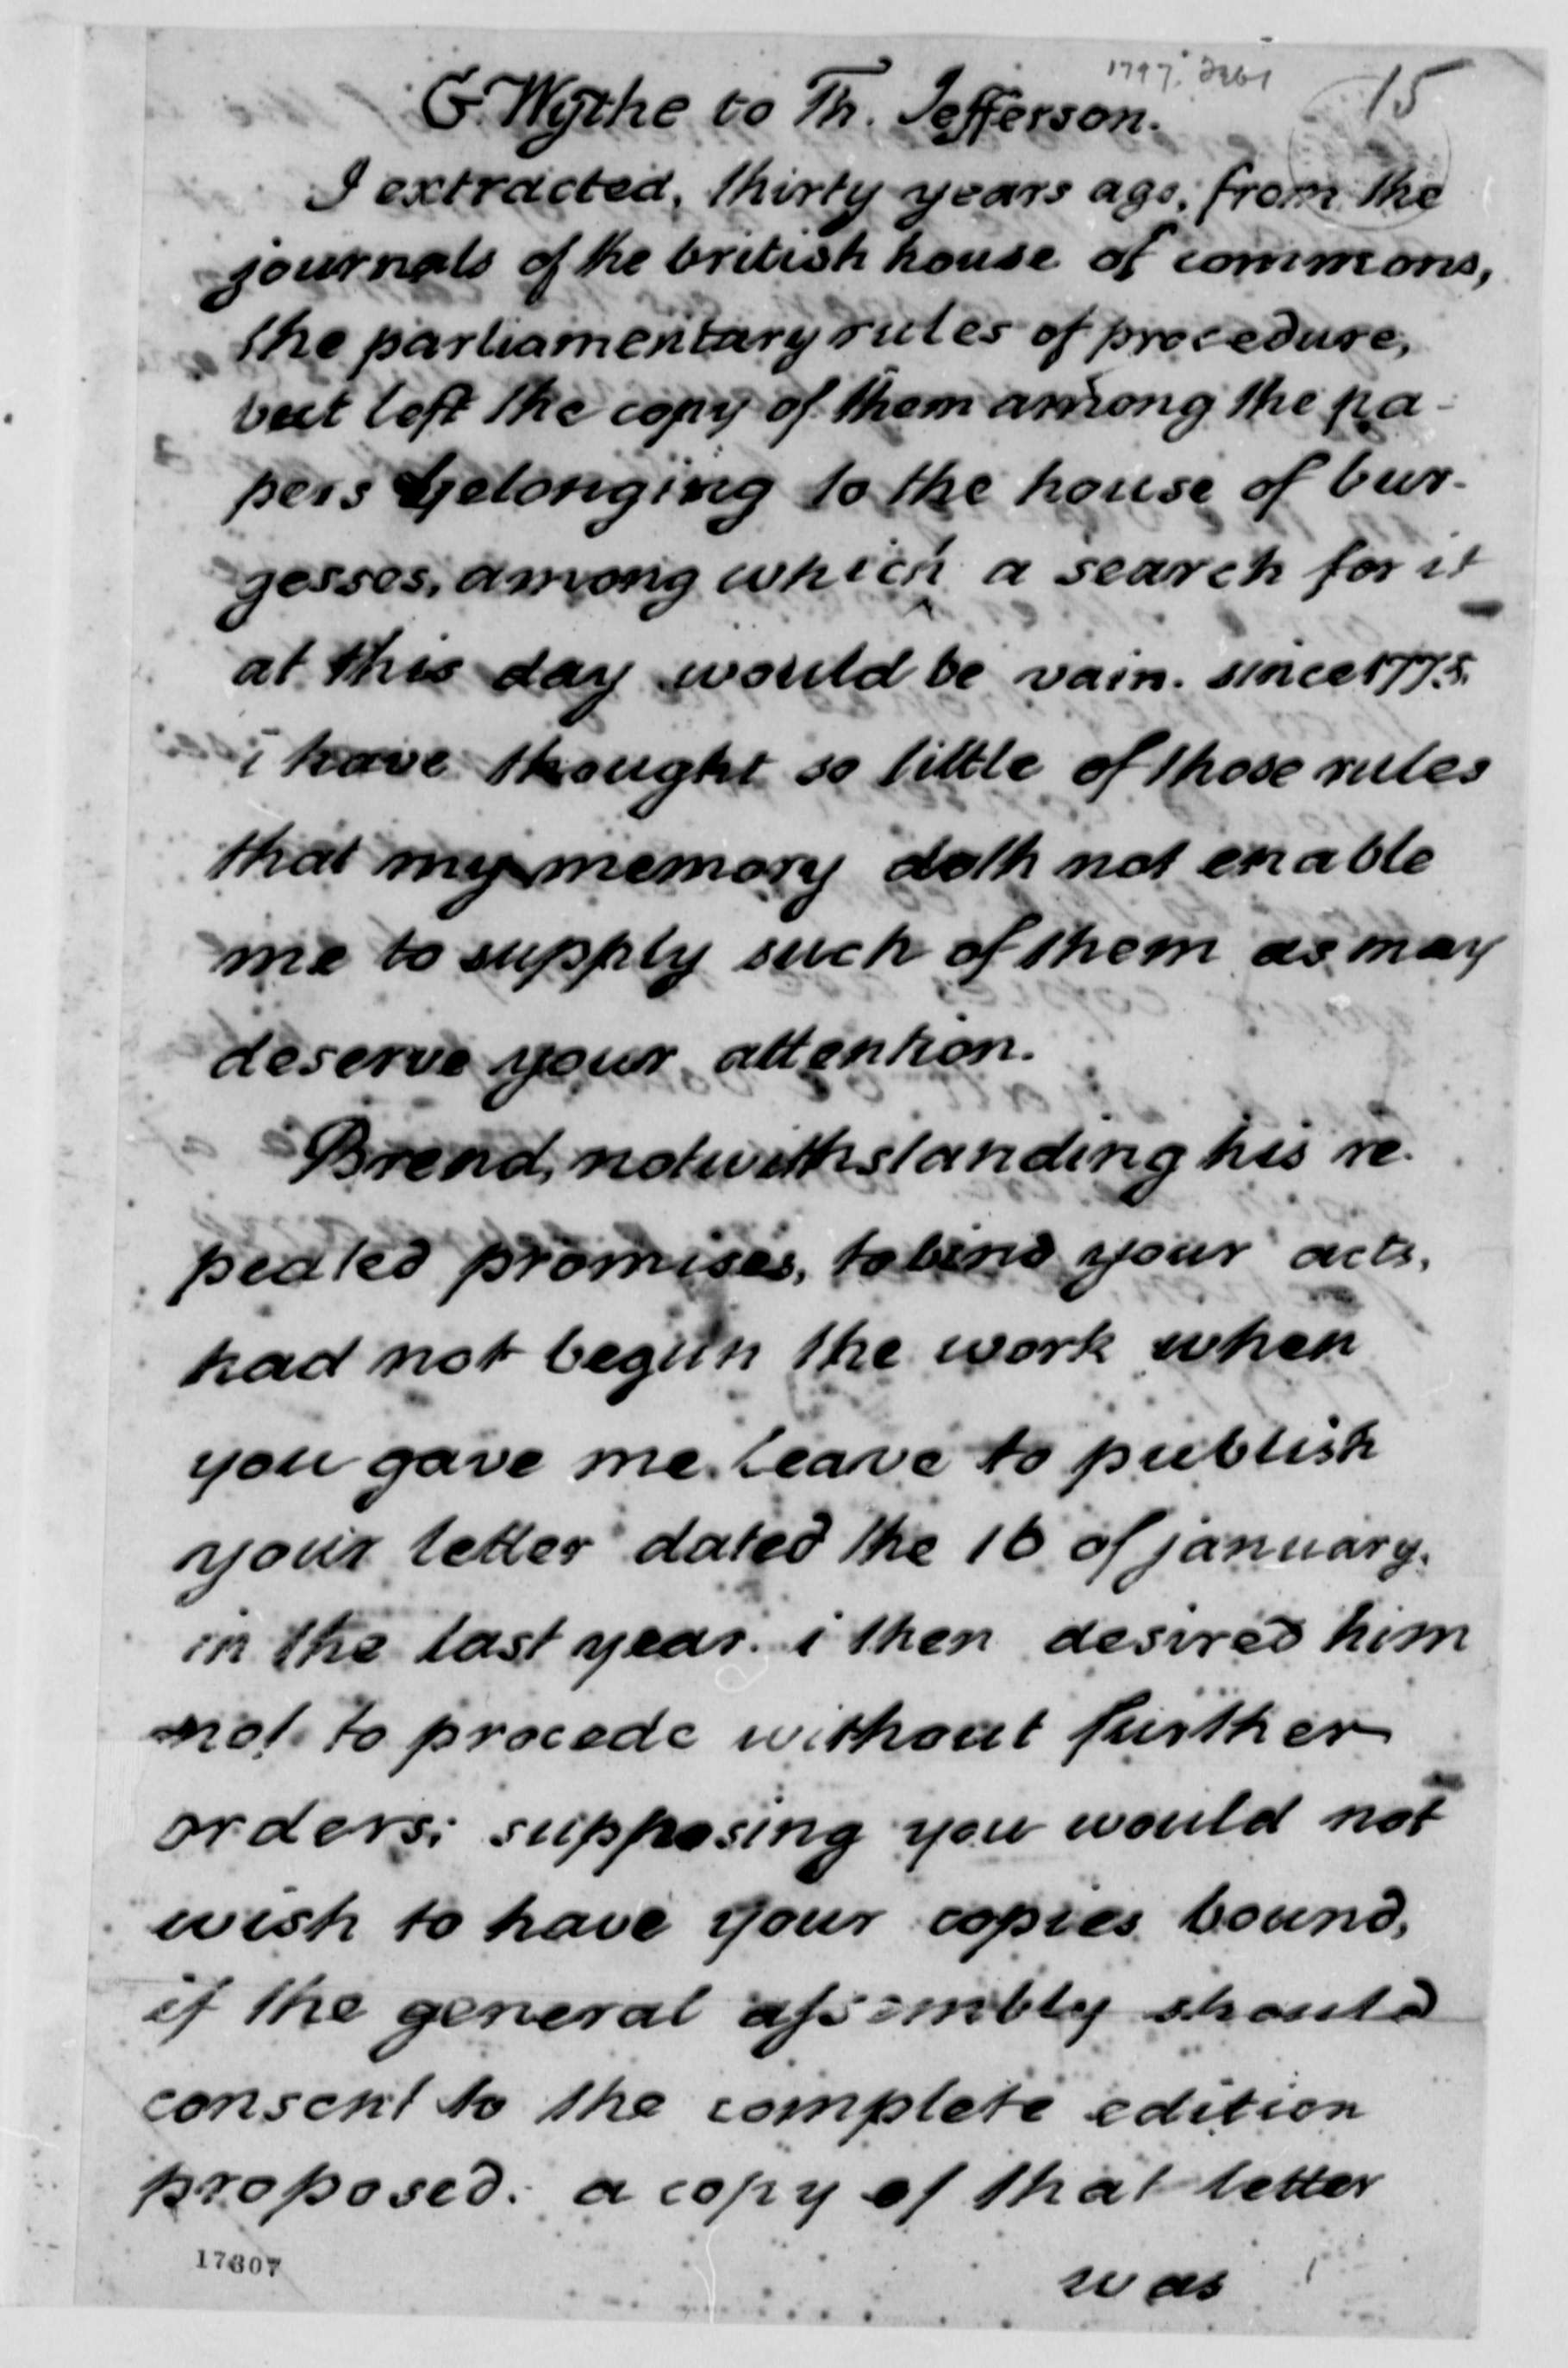 1797. Feb 1
15
G. Wythe to Th. Jefferson.
I extracted, thirty years ago, from the
journals of the british house of commons,
the parliamentary rules of procedure,
but left the copy of them among the pa-
pers belonging to the house of bur-
gesses, among which a search for it
at this day would be vain. since 1775.
i have thought so little of those rules
that my memory doth not enable
me to supply such of them as may
deserve your attention.
Brend, notwithstanding his re-
peated promises, to bind your acts,
had not begun the work when
you gave me leave to publish
your letter dated the 16 of january.
in the last year. i then desired him
not to procede without further
orders; supposing you would not
wish to have your copies bound,
if the general assembly should
consent to the complete edition
proposed. a copy of that letter
was
17307